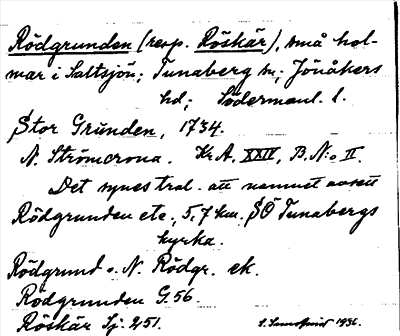 Rödgrunden (resp. Röskär), små hol-
mar i Saltsjön; Tunaberg sn; Jönåkers
hd; Södermanl. l.
Stor Grunden, 1734.
N. Strömcrona. K.A. XXIV, B. N:o II.
Det synes tral. att namnet avsett
Rödgrunden etc., 5,7 km. SÖ Tunabergs
kyrka.
Rödgrund o. N. Rödgr. ek.
Rödgrunden G. 56.
Röskär Sj. 251.
1936.